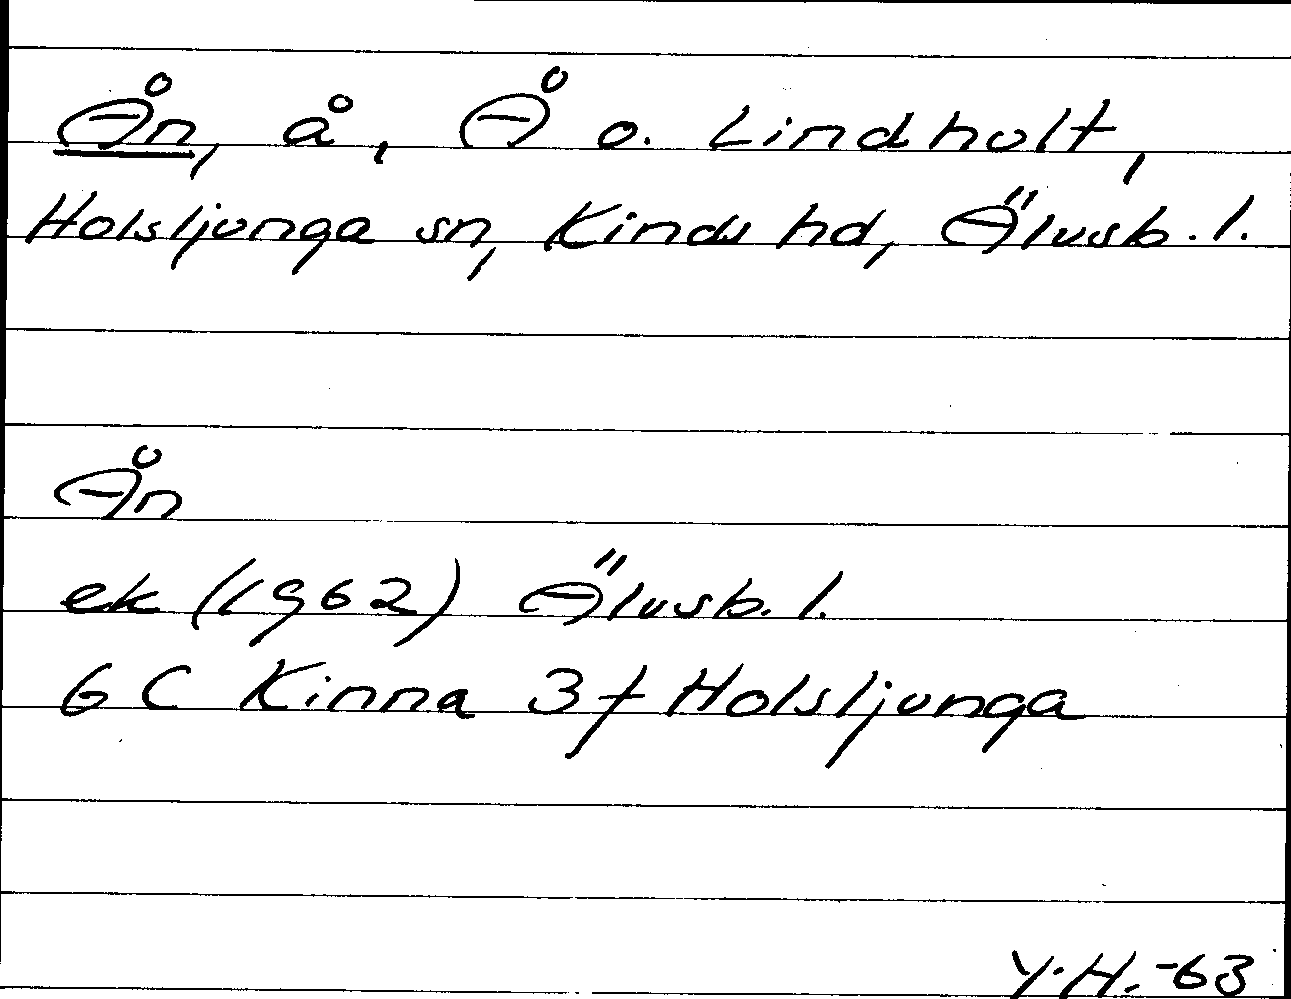 Ån, å, Å o. Lindholt,
Holsljunga sn, Kinds hd, Älvsb. l.
Ån
ek (1962) Älvsb. l.
6 C Kinna 3f Holsljunga
Y.H. -63